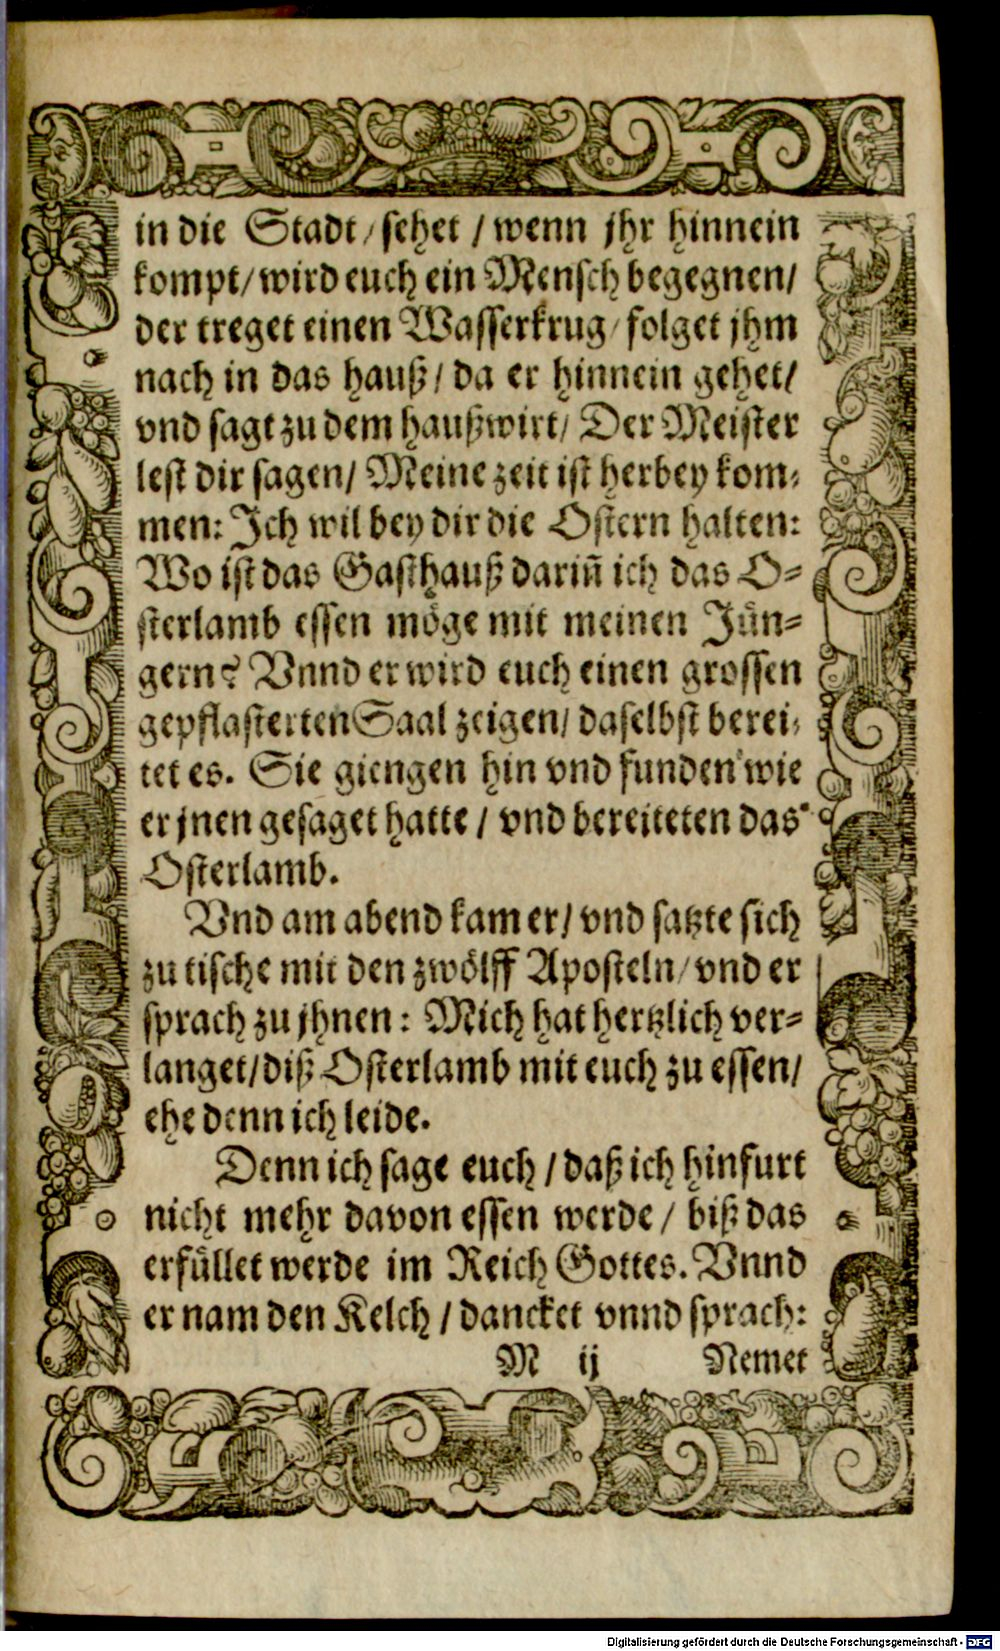 in die Stadt / sehet / wenn jhr hinnein
kompt / wird euch ein Mensch begegnen /
der treget einen Wasserkrug / folget jhm
nach in das hauß / da er hinnein gehet /
vnd sagt zu dem haußwirt / Der Meister
lest dir sagen / Meine zeit ist herbey kom-
men: Ich wil bey dir die Ostern halten:
Wo ist das Gasthauß dariñ ich das O-
sterlamb essen möge mit meinen Jün-
gern? Vnnd er wird euch einen grossen
gepflasterten Saal zeigen / daselbst berei-
tet es. Sie giengen hin vnd funden wie
er jnen gesaget hatte / vnd bereiteten das
Osterlamb.
Vnd am abend kam er / vnd satzte sich
zu tische mit den zwölff Aposteln / vnd er
sprach zu jhnen: Mich hat hertzlich ver-
langet / diß Osterlamb mit euch zu essen /
ehe denn ich leide.
Denn ich sage euch / daß ich hinfurt
nicht mehr davon essen werde / biß das
erfüllet werde im Reich Gottes. Vnnd
er nam den Kelch / dancket vnnd sprach:
M ij Nemet
Digitalisierung gefördert durch die Deutsche Forschungsgemeinschaft - DFG